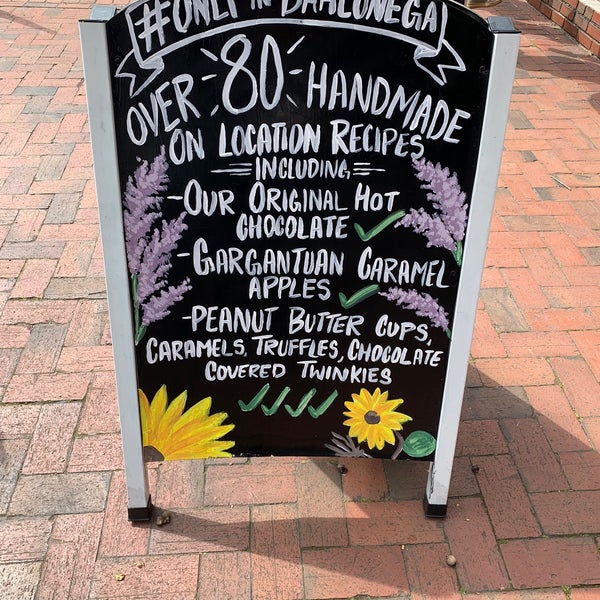 #ONLY IN DAHLONEGA
OVER 80 HANDMADE
ON LOCATION RECIPES
INCLUDING
-OUR ORIGINAL HOT
CHOCOLATE
-GARGANTUAN CARAMEL
APPLES
-PEANUT BUTTER CUPS,
CARAMELS, TRUFFLES, CHOCOLATE
COVERED TWINKIES